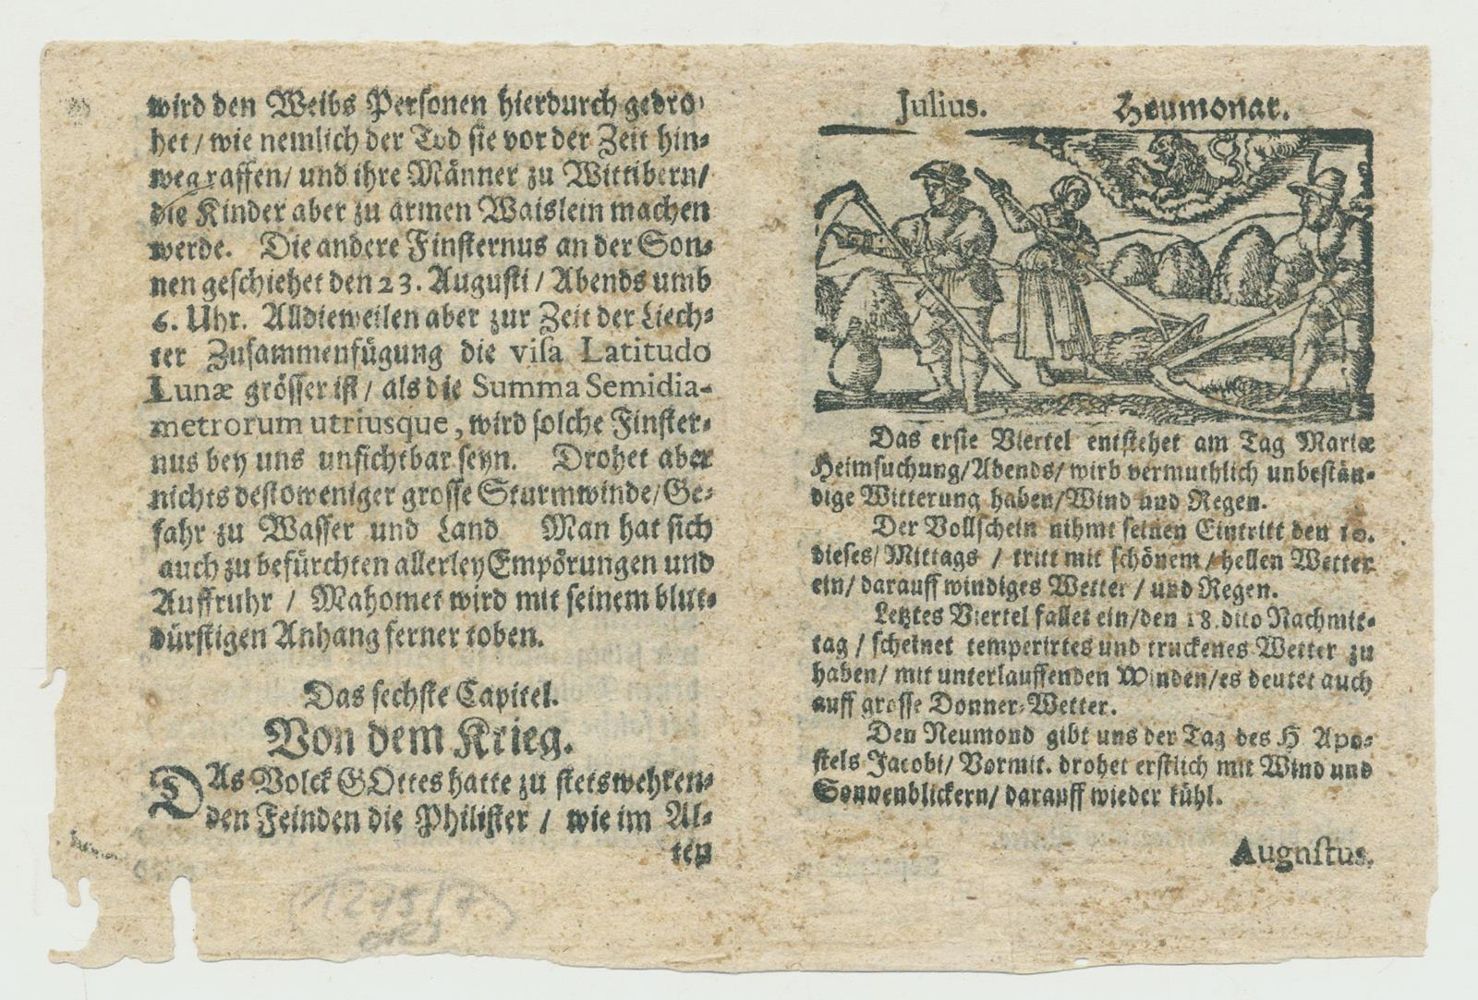 wird den Weibs Personen hierdurch gedro-
het / wie nemlich der Tod sie vor der Zeit hin-
wegraffen / und ihre Männer zu Wittibern /
die Kinder aber zu armen Waislein machen
werde. Die andere Finsternus an der Son-
nen geschiehet den 23. Augusti / Abends umb
6. Uhr. Alldieweilen aber zur Zeit der Liech-
ter Zusammenfügung die visa Latitudo
Lunæ grösser ist / als die Summa Semidia-
metrorum utriusque, wird solche Finster-
nus bey uns unsichtbar seyn. Drohet aber
nichts destoweniger grosse Sturmwinde / Ge-
fahr zu Wasser und Land Man hat sich
auch zu befürchten allerley Empörungen und
Auffruhr / Mahomet wird mit seinem blut-
dürstigen Anhang ferner toben.
Das sechste Capitel.
Von dem Krieg.
DAs Volck GOttes hatte zu stetswehren-
den Feinden die Philister / wie im Al-
ten
12757
Julius. Heumonat.
Das erste Viertel entstehet am Tag Mariæ
Heimsuchung / Abends / wird vermuthlich unbestän-
dige Witterung haben / Wind und Regen.
Der Vollschein nihmt seinen Eintritt den 10.
dieses / Mittags / tritt mit schönem / hellen Wetter
ein / darauff windiges Wetter / und Regen.
Letztes Viertel fallet ein / den 18. dito Nachmit-
tag / scheinet temperirtes und truckenes Wetter zu
haben / mit unterlauffenden Winden / es deutet auch
auff grosse Donner-Wetter.
Den Neumond gibt uns der Tag des H Apo-
stels Jacobi / Vormit. drohet erstlich mit Wind und
Sonnenblickern / darauff wieder kühl.
Augnstus.